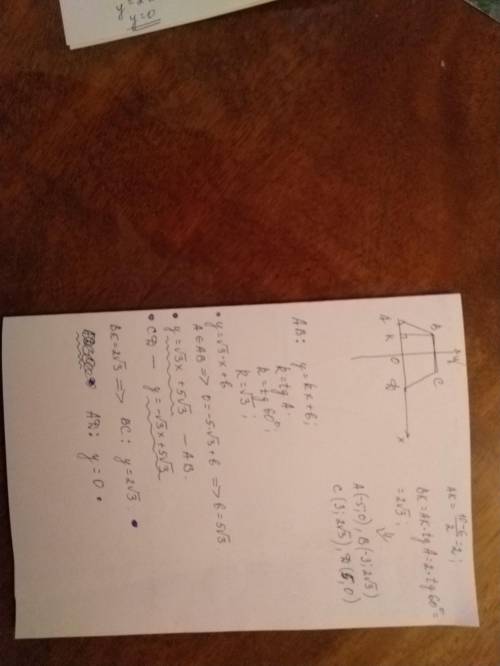 y=0
B
C
y
A
K
O
D
x
AK = (10-6)/2 = 2;
BK = AK·tg A = 2·tg 60° =
= 2√3;
A(-5;0), B(-3;2√3)
C(3;2√3), D(5;0)
AB: y = kx + b;
k = tg A.
k = tg 60°;
k = √3;
• y = √3·x + b
A ∈ AB => 0 = -5·√3 + b => b = 5√3
• y = √3x + 5√3 — AB.
• CD — y = -√3x + 5√3
BK = 2√3 => BC: y = 2√3 •
AD: y = 0 •